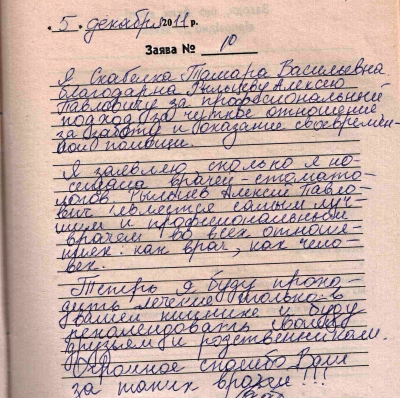 "5" декабря 2011 р.
Заява № 10
Я Скабелка Тамара Васильевна
благодарна Алексею
Павловичу за професиональный
подход за чуткое отношение
за заботу и оказание своевремен-
ной помощи.
Я заявляю сколько я по-
сещала врачей-стомато-
логов Алексей Павло-
вич является самым луч-
шим и професиональным
врачем во всех отноше-
ниях: как врач, как чело-
век.
Теперь я буду прохо-
дить лечение только в
вашей клинике и буду
рекомендовать своим
друзьям и родственникам.
Огромное спасибо Вам
за таких врачей!!!